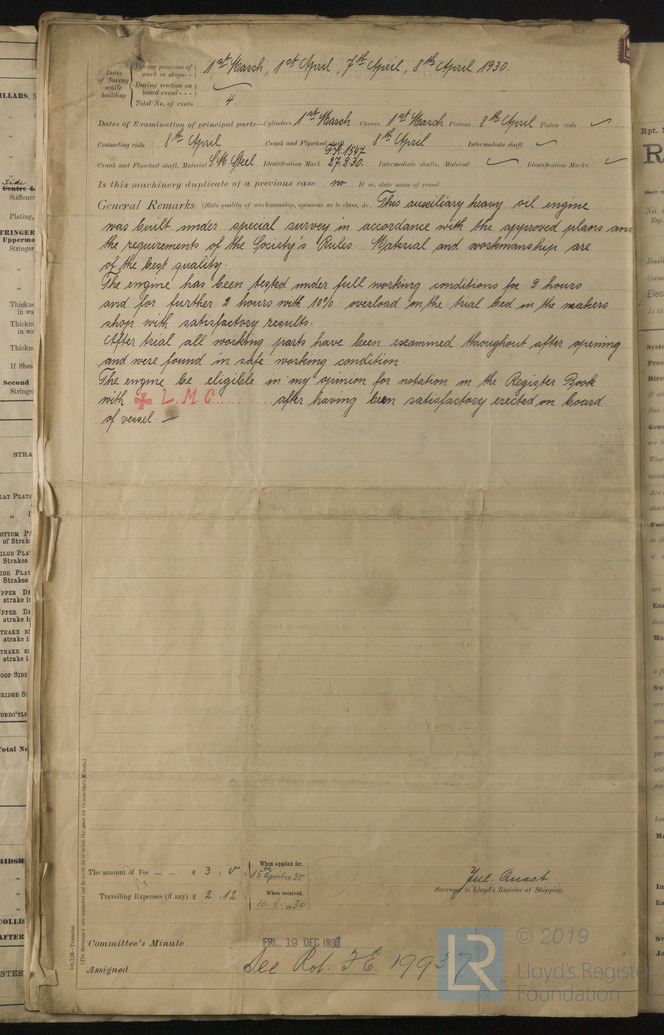 Dates of Survey while building
During progress of work in shops - - 1st March, 1st April, 7th April, 8th April 1930.
During erection on board vessel - - -
Total No. of visits 4
Dates of Examination of principal parts—Cylinders 1st March Covers 1st March Pistons 8th April Piston rods ✓
Connecting rods 8th April Crank and Flywheel shaft 8th April Intermediate shaft ✓
Crank and Flywheel shaft, Material S.M. Steel Identification Mark 27.2.30. Intermediate shafts, Material ✓ Identification Marks ✓
Is this machinery duplicate of a previous case no If so, state name of vessel
General Remarks (State quality of workmanship, opinions as to class, &c. This auxiliary heavy oil engine
was built under special survey in accordance with the approved plans and
the requirements of the Society's Rules. Material and workmanship are
of the best quality.
The engine has been tested under full working conditions for 2 hours
and for further 2 hours with 10% overload on the trial bed in the makers
shop with satisfactory results.
After trial all working parts have been examined throughout after opening
and were found in safe working condition.
The engine be eligible in my opinion for notation in the Register Book
with ✠ L.M.C. after having been satisfactory erected on board
of vessel.—
The amount of Fee ... ... £ 3 : 0 When applied for,
15th April 1930
Travelling Expenses (if any) £ 2 : 12 When received,
10.6.1930
Jul. Quast
Surveyor to Lloyd's Register of Shipping.
Committee's Minute FRI. 19 DEC 1930
Assigned See Rpt. F.E. 19937
(The Surveyors are requested not to write on or below the space for Committee's Minute.)
© 2019
LR
Lloyd's Register
Foundation